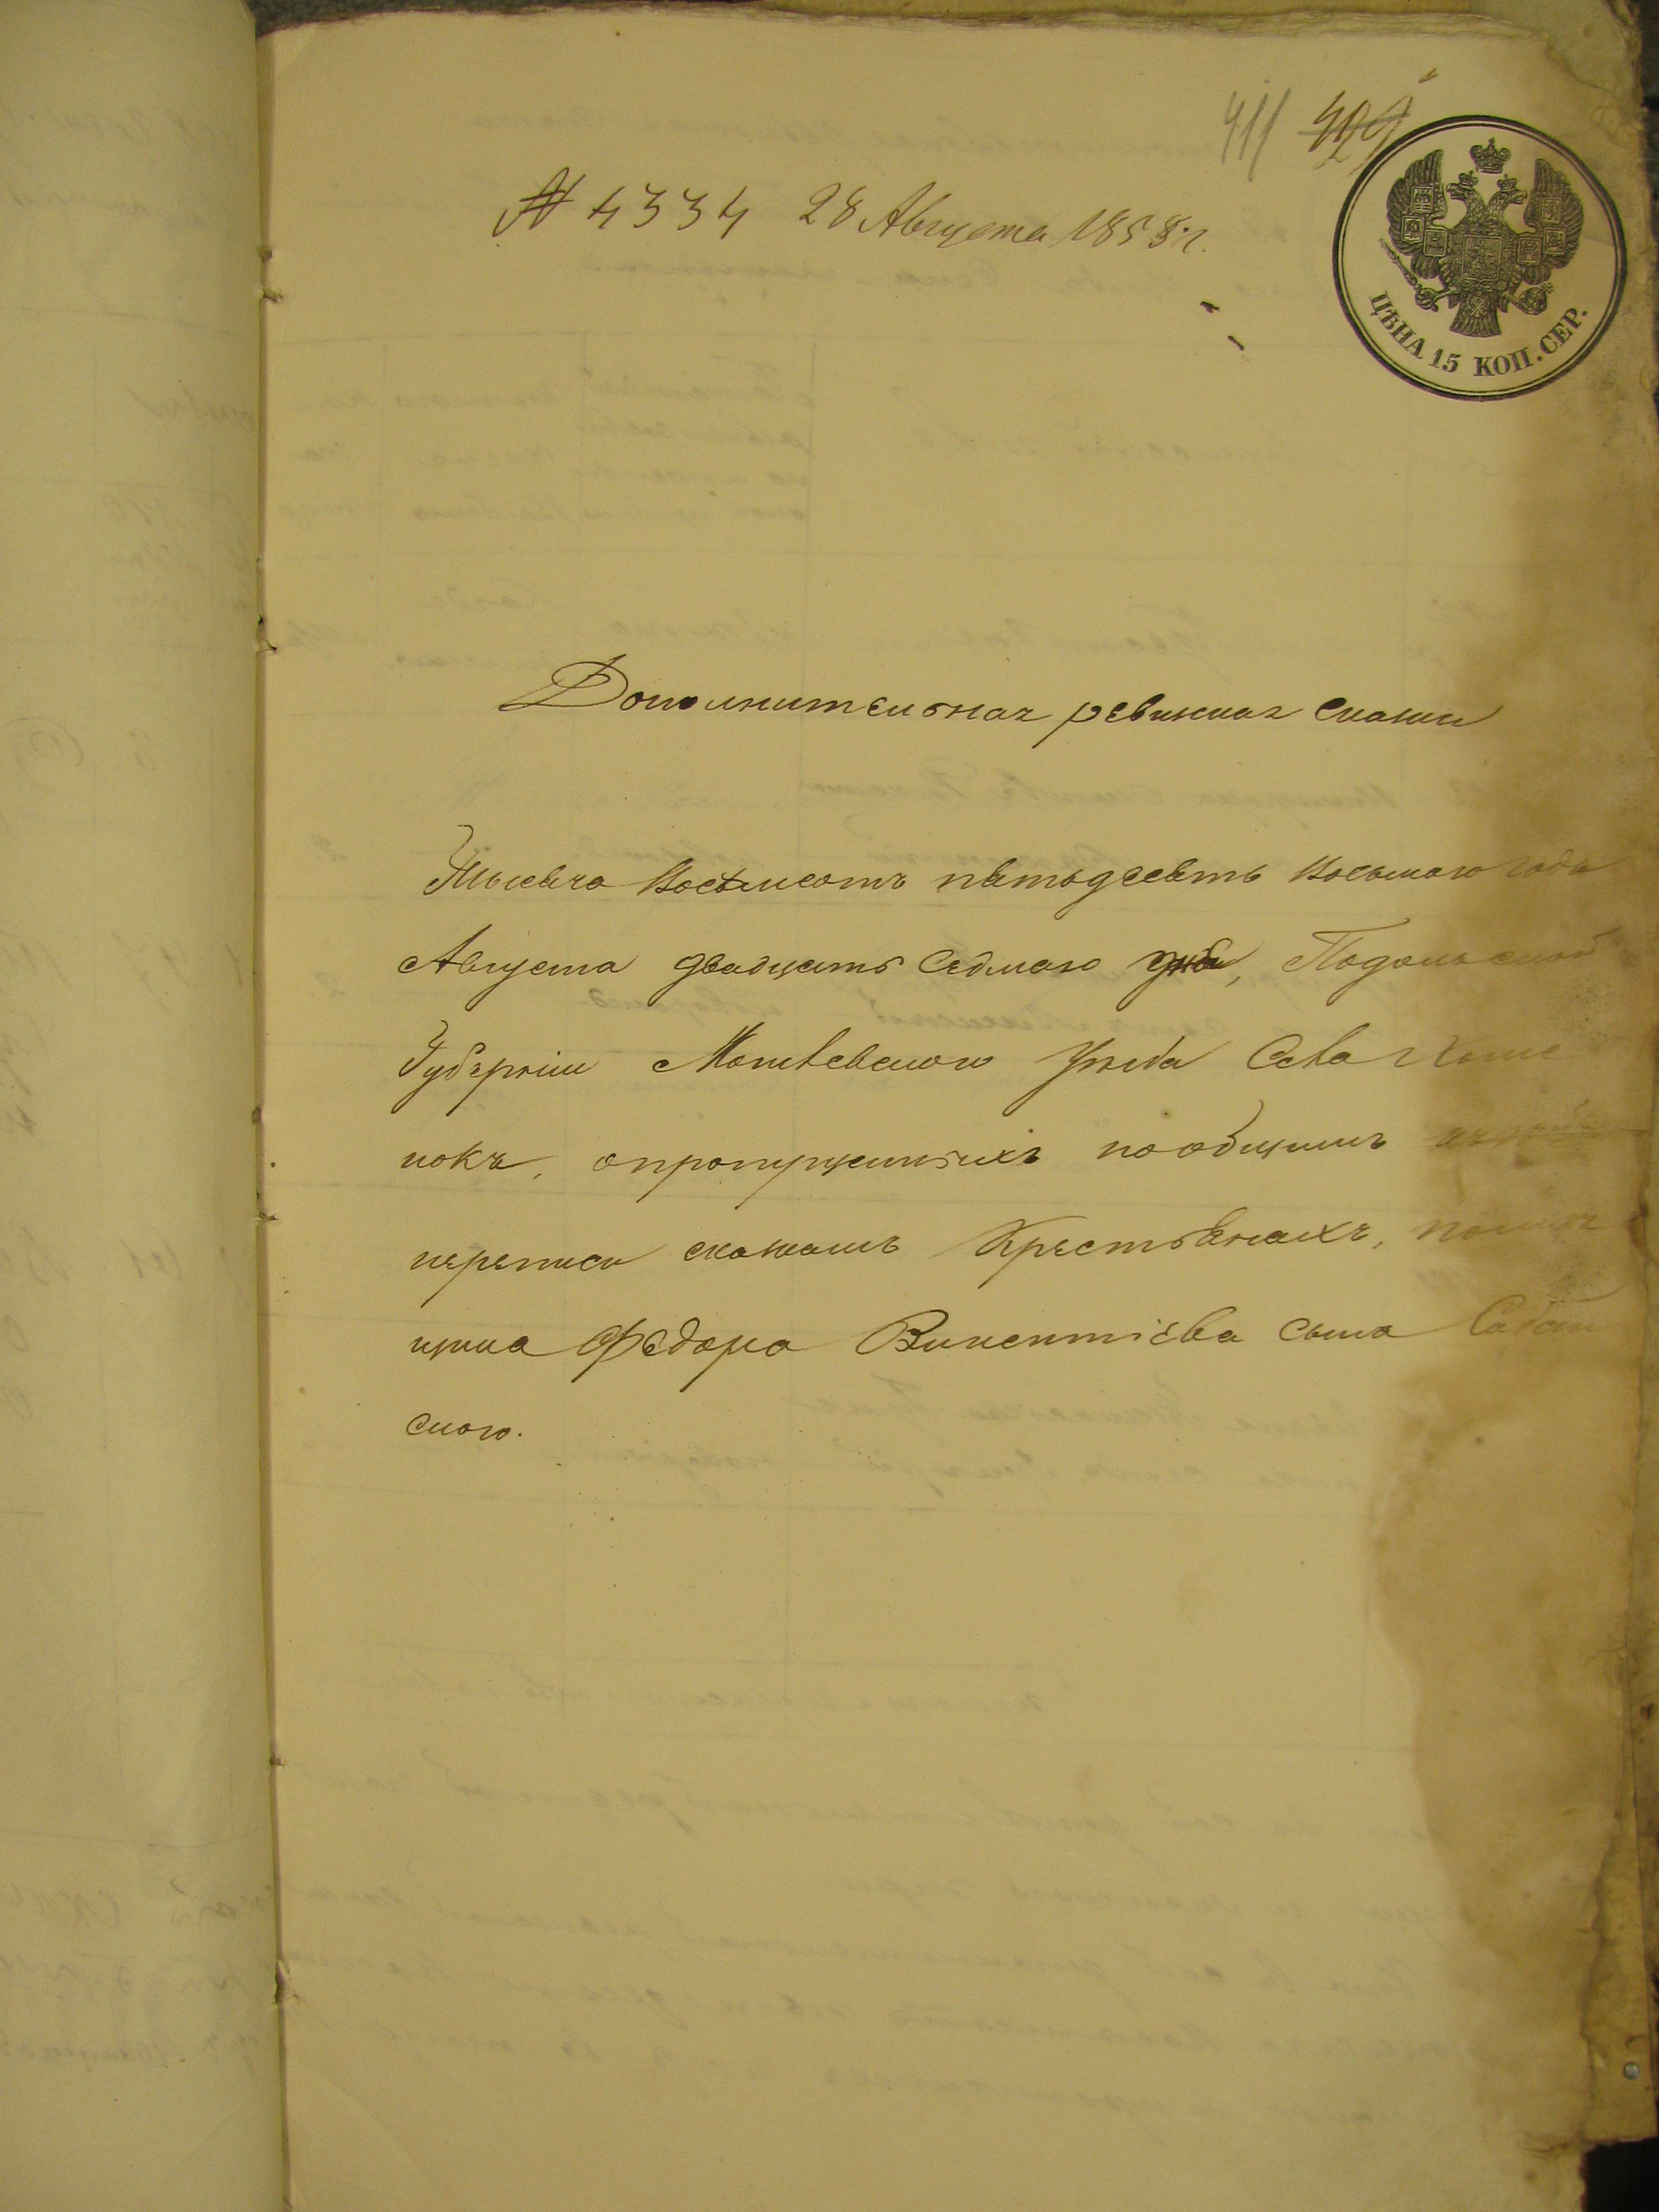 411 429
№ 4334 28 Августа 1858 г.
ЦѢНА 15 КОП. СЕР.
Дополнительная ревижская сказка
Тысяча Восѣмсотъ пятьдесятъ Восьмаго года
Августа двадцать Седмаго дня, Подольской
Губерніи Могилевскаго уѣзда Села
нокъ, опропущенныхъ пообщимъ
переписи сказкамъ Крестьянахъ, помѣ
щика Федора Викентіева сына Собан
скаго.